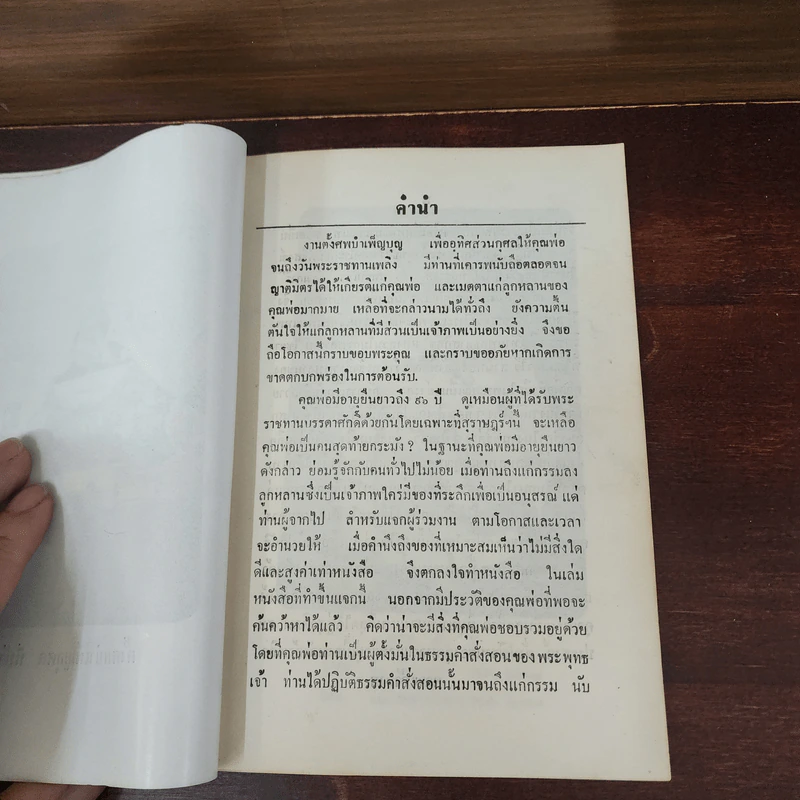 คำนำ
งานตั้งศพบำเพ็ญบุญ เพื่ออุทิศส่วนกุศลให้คุณพ่อ
จนถึงวันพระราชทานเพลิง มีท่านที่เคารพนับถือตลอดจน
ญาติมิตรได้ให้เกียรติแก่คุณพ่อ และเมตตาแก่ลูกหลานของ
คุณพ่อมากมาย เหลือที่จะกล่าวนามได้ทั่วถึง ยังความตื้น
ตันใจให้แก่ลูกหลานที่มีส่วนเป็นเจ้าภาพเป็นอย่างยิ่ง จึงขอ
ถือโอกาสนี้กราบขอบพระคุณ และกราบขออภัยหากเกิดการ
ขาดตกบกพร่องในการต้อนรับ.
คุณพ่อมีอายุยืนยาวถึง ๙๖ ปี ดูเหมือนผู้ที่ได้รับพระ
ราชทานบรรดาศักดิ์ด้วยกันโดยเฉพาะที่สุราษฎร์ฯนี้ จะเหลือ
คุณพ่อเป็นคนสุดท้ายกระมัง? ในฐานะที่คุณพ่อมีอายุยืนยาว
ดังกล่าว ย่อมรู้จักกับคนทั่วไปไม่น้อย เมื่อท่านถึงแก่กรรมลง
ลูกหลานซึ่งเป็นเจ้าภาพใคร่มีของที่ระลึกเพื่อเป็นอนุสรณ์แด่
ท่านผู้จากไป สำหรับแจกผู้ร่วมงาน ตามโอกาสและเวลา
จะอำนวยให้ เมื่อคำนึงถึงของที่เหมาะสมเห็นว่าไม่มีสิ่งใด
ดีและสูงค่าเท่าหนังสือ จึงตกลงใจทำหนังสือ ในเล่ม
หนังสือที่ทำขึ้นแจกนี้ นอกจากมีประวัติของคุณพ่อที่พอจะ
ค้นคว้าหาได้แล้ว คิดว่าน่าจะมีสิ่งที่คุณพ่อชอบรวมอยู่ด้วย
โดยที่คุณพ่อท่านเป็นผู้ตั้งมั่นในธรรมคำสั่งสอนของพระพุทธ
เจ้า ท่านได้ปฏิบัติธรรมคำสั่งสอนนั้นมาจนถึงแก่กรรม นับ